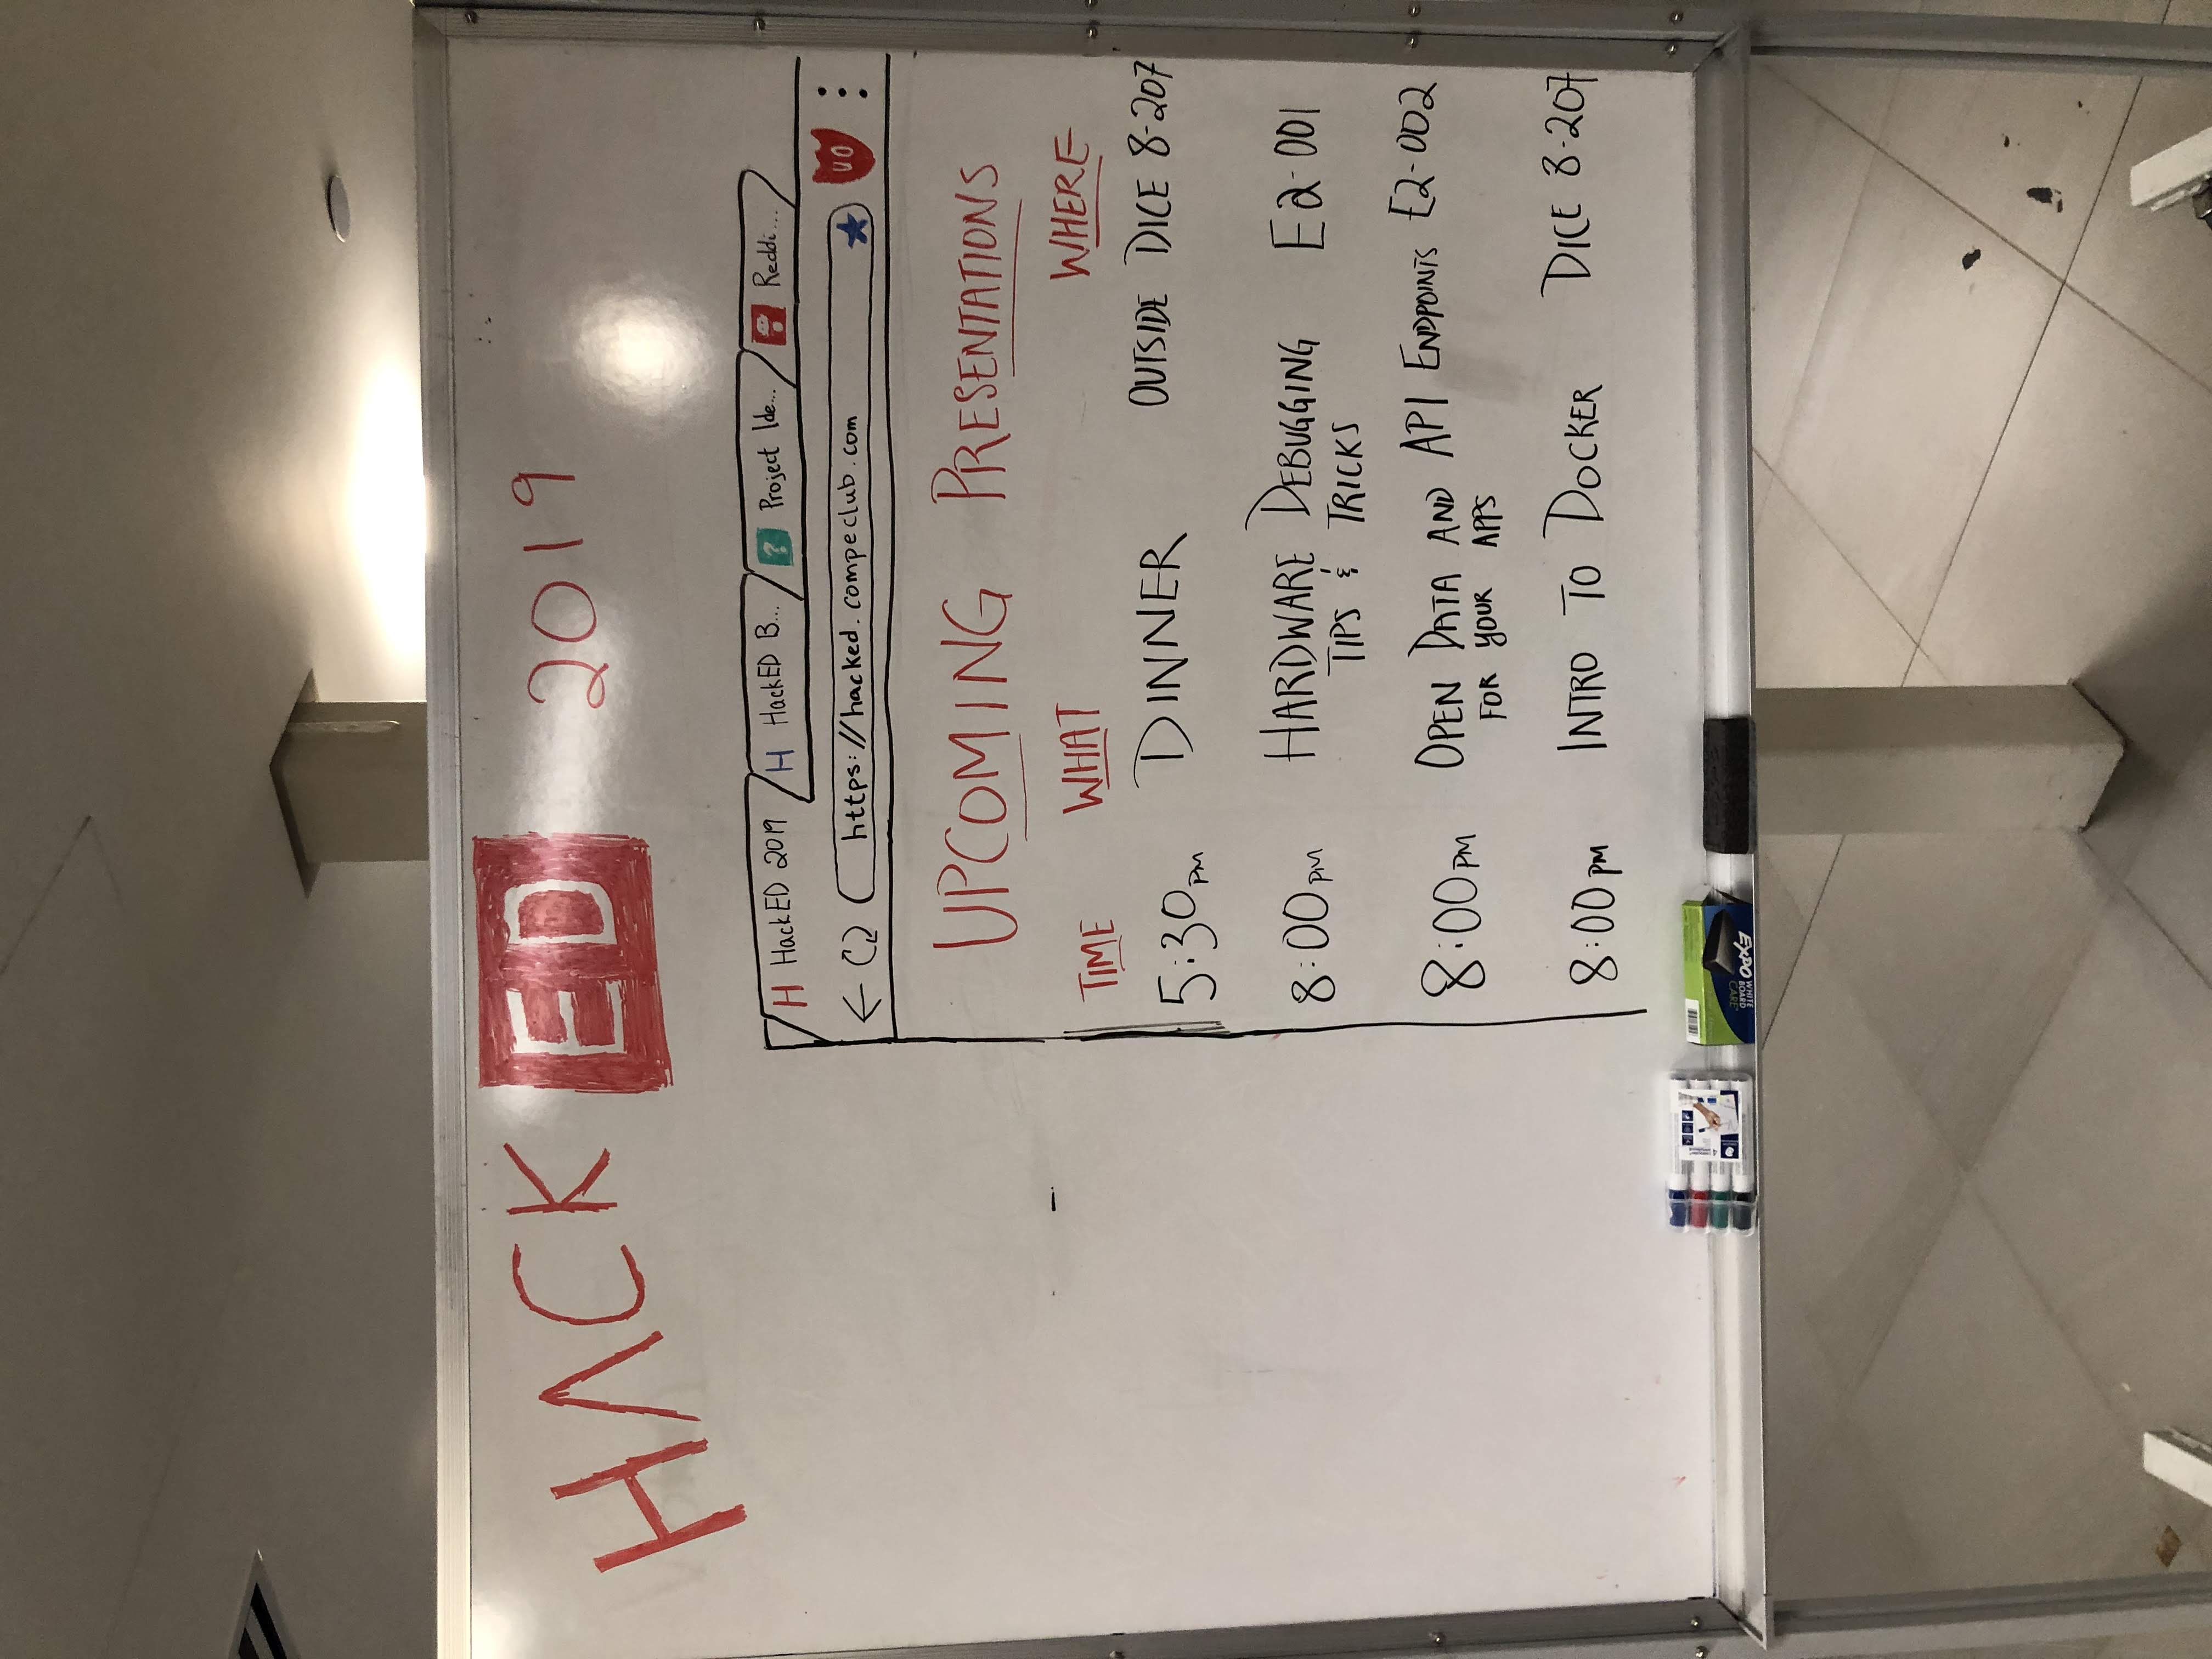 HACKED 2019
H HackED 2019 H HackED B... ? Project Ide... Reddi...
https://hacked.compeclub.com UO
UPCOMING PRESENTATIONS
TIME WHAT WHERE
5:30PM DINNER OUTSIDE DICE 8-207
8:00PM HARDWARE DEBUGGING E2-001
TIPS & TRICKS
8:00PM OPEN DATA AND API ENDPOINTS E2-002
FOR YOUR APPS
8:00PM INTRO TO DOCKER DICE 8-207
4
EXPO
WHITE
BOARD
CARE